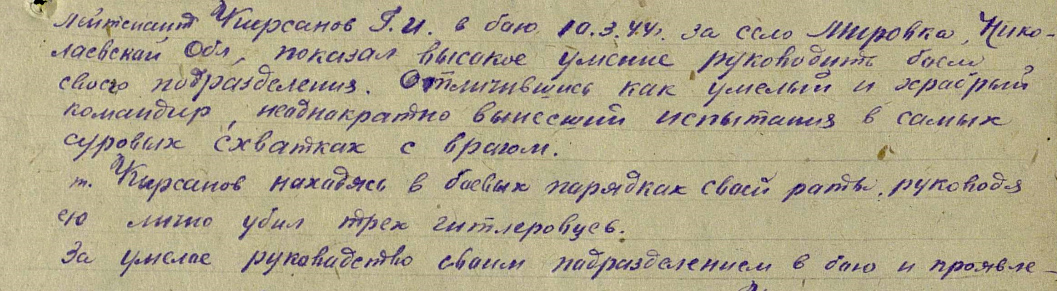 Лейтенант Кирсанов Г.И. в бою 10.3.44г. за село Мировка, Нико-
лаевской Обл, показал высокое умение руководить боем
своего подразделения. Отличившись как умелый и храбрый
командир, неоднократно вынесший испытания в самых
суровых схватках с врагом.
т. Кирсанов находясь в боевых порядках своей роты, руководя
ею лично убил трех гитлеровцев.
За умелое руководство своим подразделением в бою и проявле-